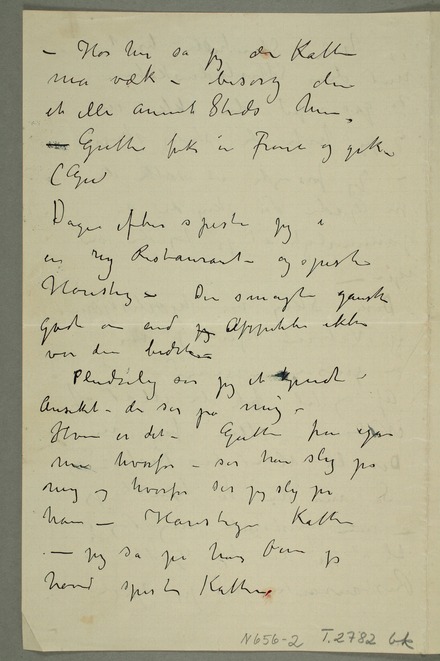 – Hør her sa jeg den Katten
må væk – besørg den
et eller annet Steds hen.
Gutten fik en Franc og gik
Dagen efter spiste jeg i
en ny Restaurant – og spiste
Haresteg – Den smagte ganske
godt om end Appetitten ikke
var den bedste
Pludselig ser jeg et kjendt
Ansikt – der ser på mig –
Hvem er det – Gutten fra igår
men hvorfor – ser han slig på
mig og hvorfor ser jeg slig på
ham – Harestegen Katten
– jeg sa på
spiste Katten
N656-2 T.2782